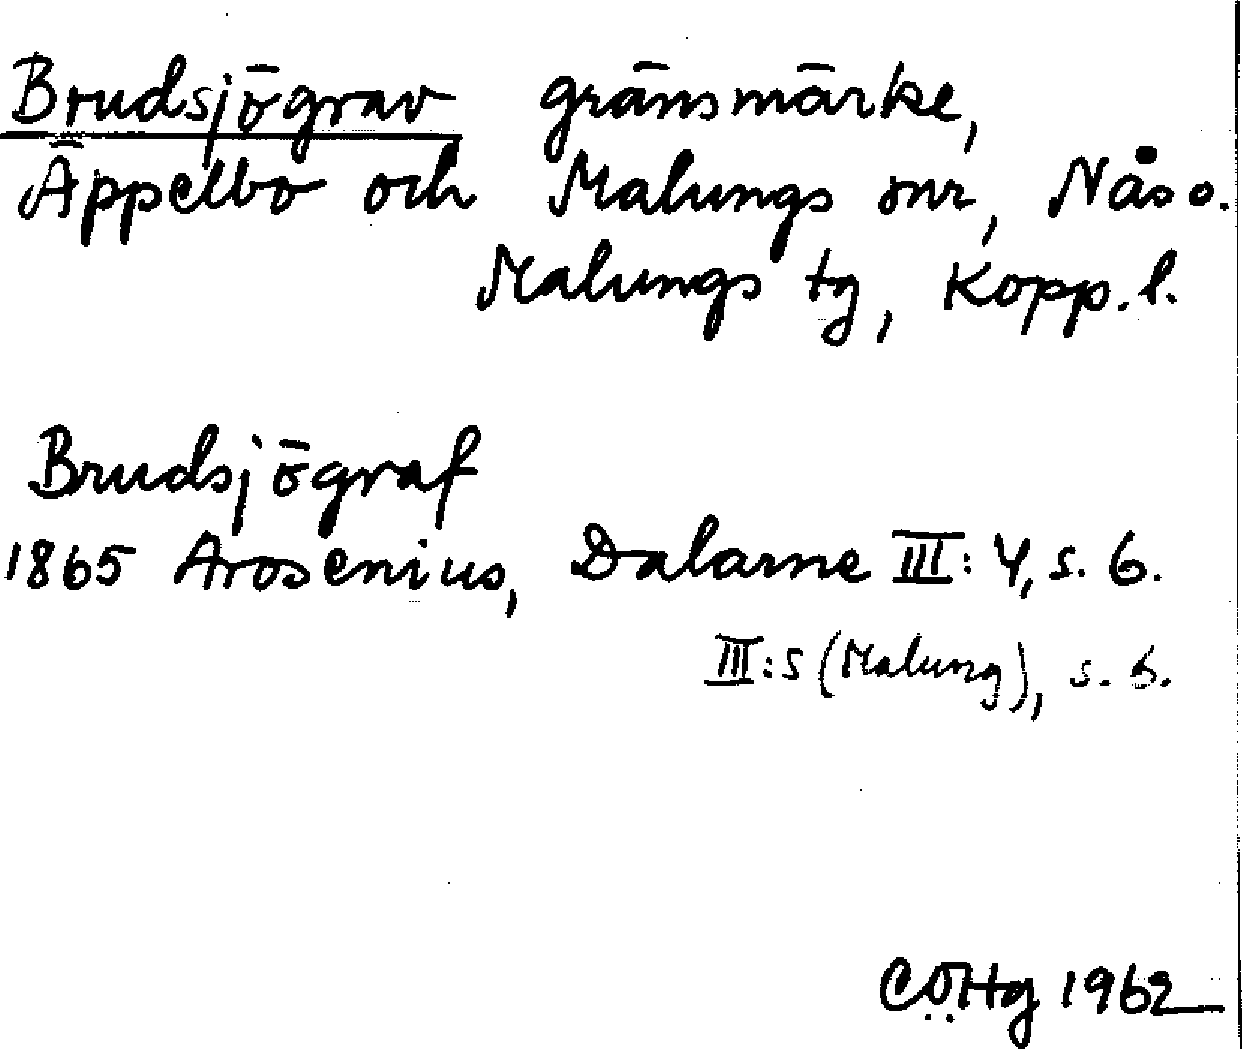 Brudsjögrav gränsmärke,
Äppelbo och Malungs snr, Nås o.
Malungs tg, Kopp. l.
Brudsjögraf
1865 Arosenius, Dalarne III: 4, s. 6.
III: 5 (Malung), s. 6.
CÖHg 1962